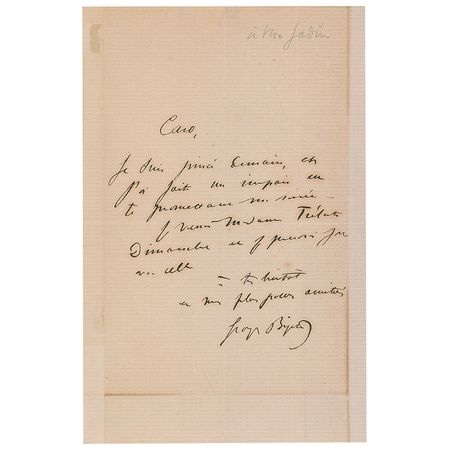 à Mr Jadin
Caro,
Je suis pincé demain, et
j'ai fait un impair en
te promettant ma soirée
Je verrai Madame Trélat
Dimanche et je
elle
= à bientôt
et mes plus amitiés
Georges Bizet